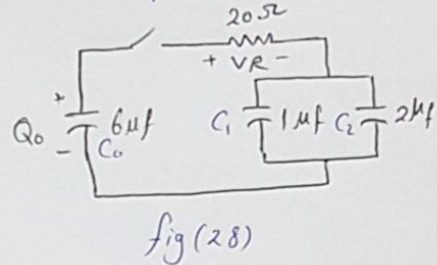 20Ω
+ VR -
+
Q₀
-
6μf
C₀
C₁
1μf
C₂
2μf
fig (28)